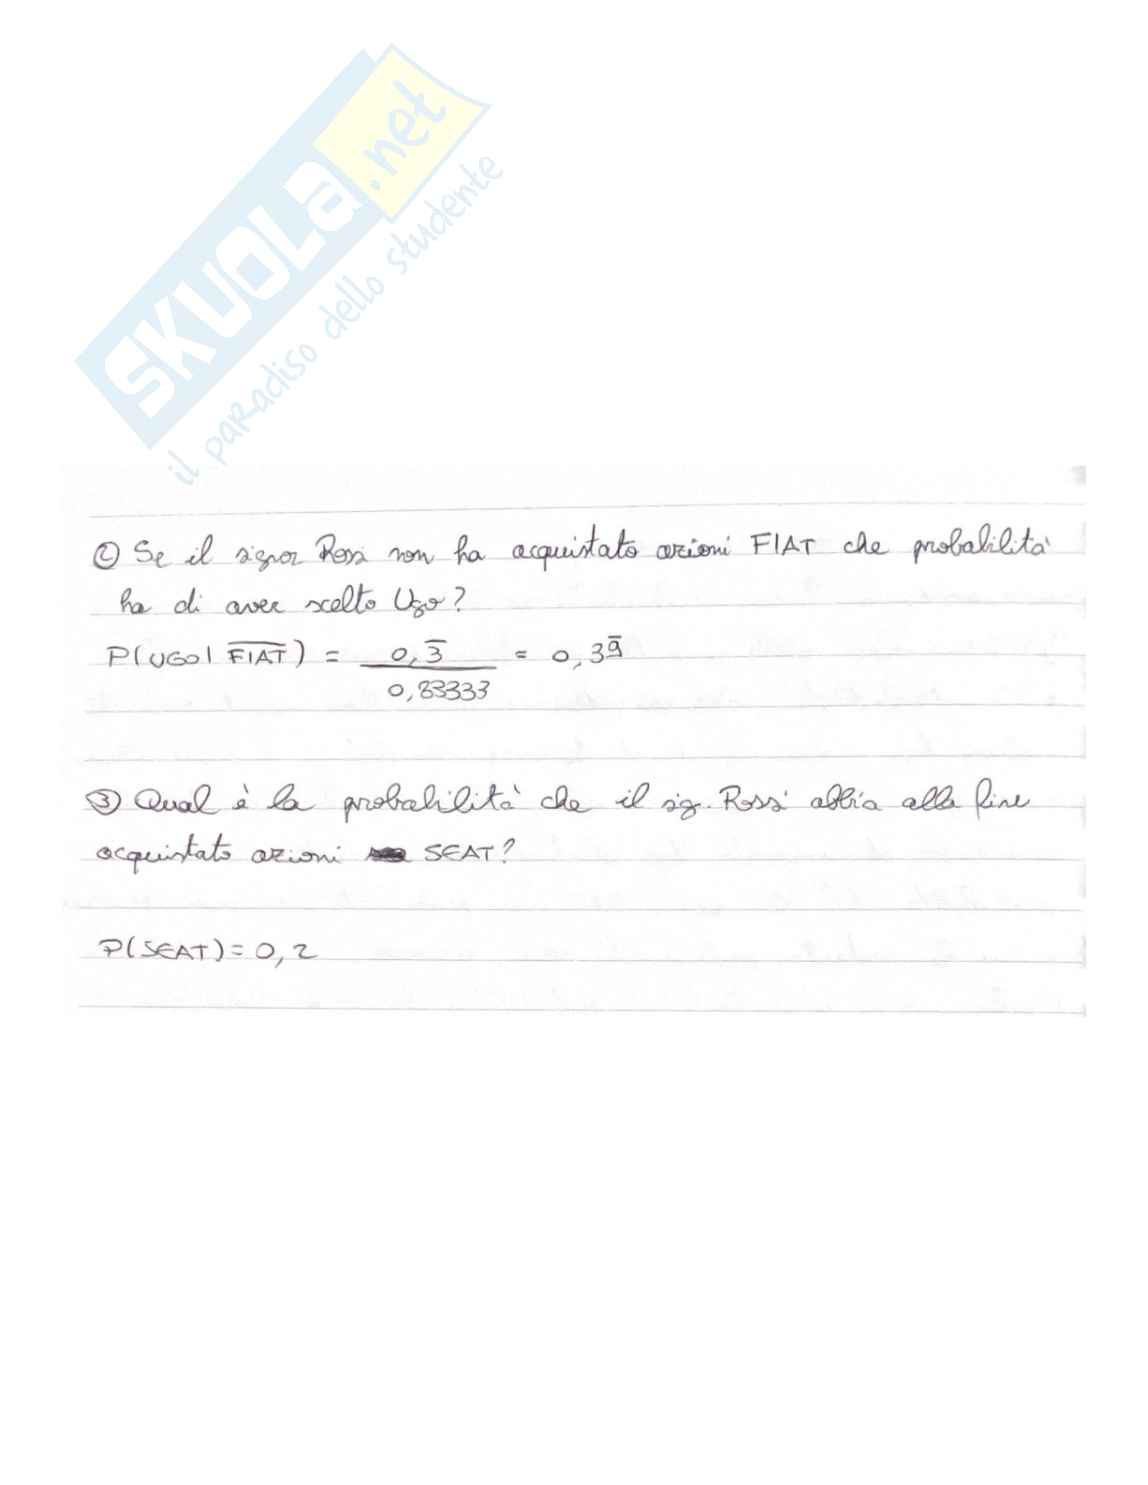 SKUOLA.net
il paradiso dello studente
② Se il signor Rossi non ha acquistato azioni FIAT che probabilità
ha di aver scelto Ugo?
P(UGO| F̅I̅A̅T̅) = 0,3̅ / 0,83333 = 0,39̅
③ Qual è la probabilità che il sig. Rossi abbia alla fine
acquistato azioni SEAT?
P(SEAT) = 0,2